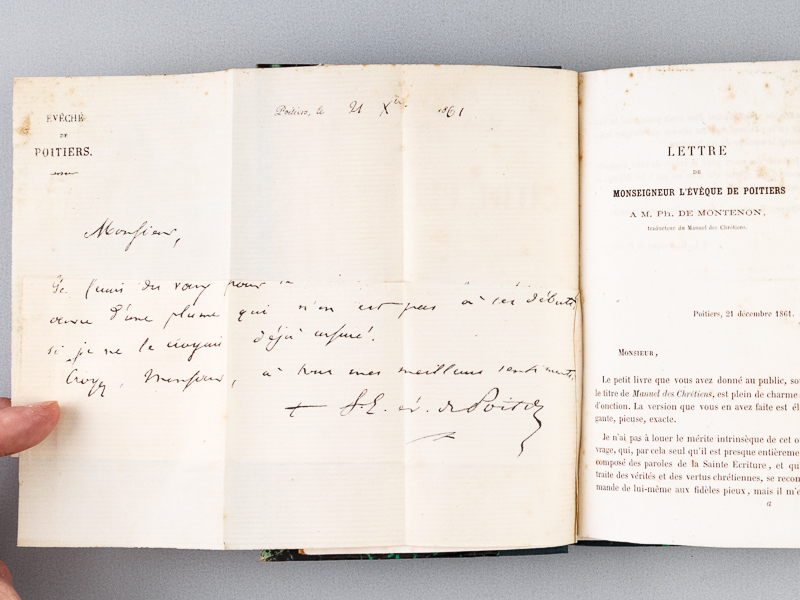 EVÊCHÉ
DE
POITIERS.
Poitiers, le 21 Xbre 1861
Monsieur,
Je ferais des vœux pour
œuvre d'une plume qui n'en est pas à ses débuts
si je ne le croyais déjà assuré.
Croyez, Monsieur, à tous mes meilleurs sentiments.
+ L. E. év. de Poitiers
LETTRE
DE
MONSEIGNEUR L'ÉVÊQUE DE POITIERS
A M. PH. DE MONTENON,
traducteur du Manuel des Chrétiens.
Poitiers, 21 décembre 1861.
MONSIEUR,
Le petit livre que vous avez donné au public, so
le titre de Manuel des Chrétiens, est plein de charme
d'onction. La version que vous en avez faite est él
gante, pieuse, exacte.
Je n'ai pas à louer le mérite intrinsèque de cet o
vrage, qui, par cela seul qu'il est presque entièreme
composé des paroles de la Sainte Ecriture, et qu
traite des vérités et des vertus chrétiennes, se recom
mande de lui-même aux fidèles pieux, mais il m'e
a